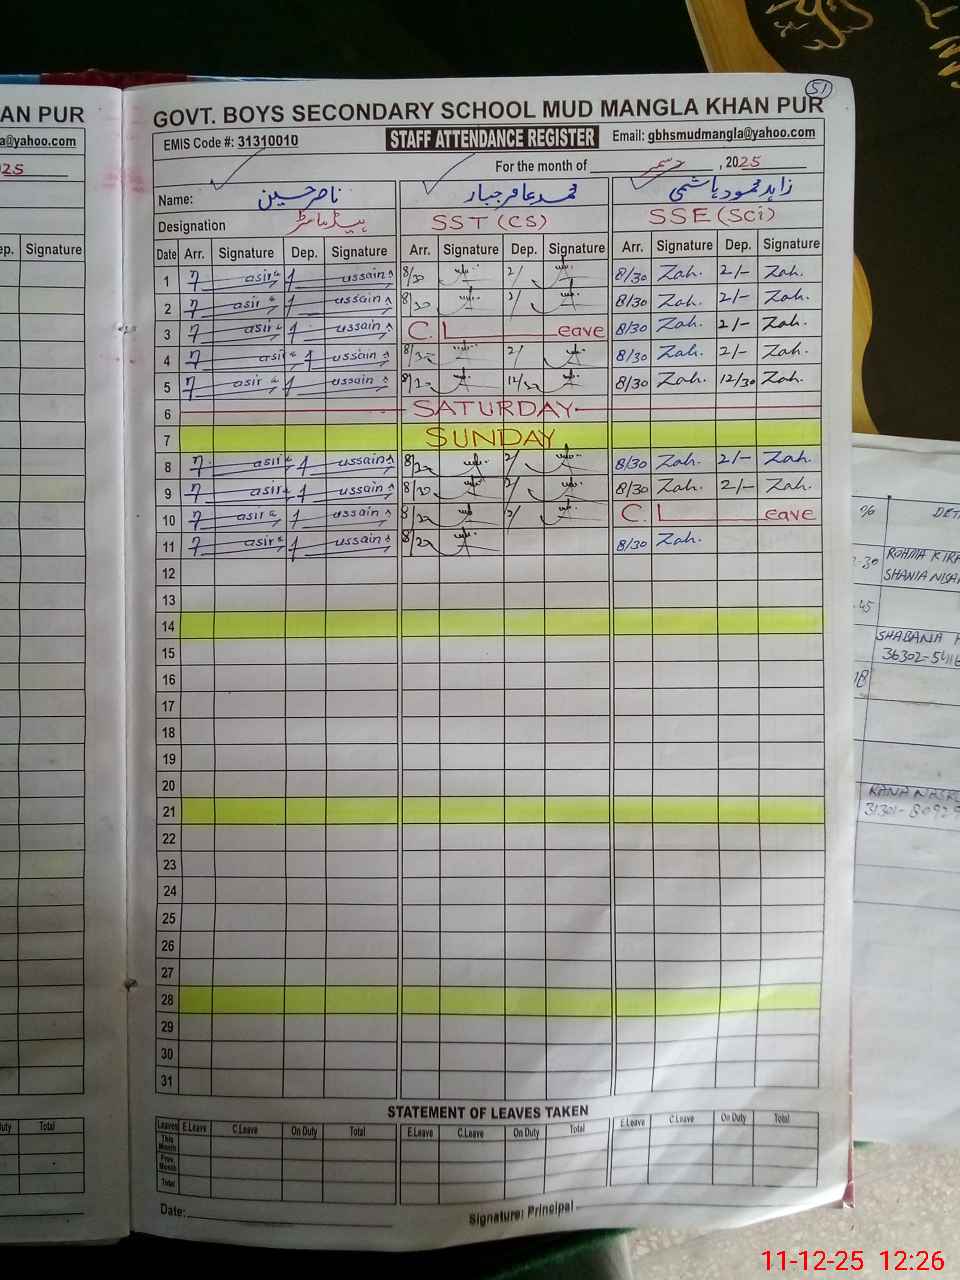 51
AN PUR
GOVT. BOYS SECONDARY SCHOOL MUD MANGLA KHAN PUR
a@yahoo.com
EMIS Code #: 31310010 STAFF ATTENDANCE REGISTER Email: gbhsmudmangla@yahoo.com
25
For the month of دسمبر , 2025
Name: ناصر حسین محمد عامر جبار زاہد محمود ہاشمی
Designation ہیڈ ماسٹر SST (CS) SSE (Sci)
ep. Signature
Date Arr. Signature Dep. Signature Arr. Signature Dep. Signature Arr. Signature Dep. Signature
1 7 asir 1 ussain 8/30 2/ 8/30 Zah. 2/- Zah.
2 7 asir 1 ussain 8/30 2/ 8/30 Zah. 2/- Zah.
3 7 asir 1 ussain C. L eave 8/30 Zah. 2/- Zah.
4 7 asir 1 ussain 8/30 2/ 8/30 Zah. 2/- Zah.
5 7 asir 1 ussain 8/30 12/30 8/30 Zah. 12/30 Zah.
6 SATURDAY
7 SUNDAY
8 7 asir 1 ussain 8/30 2/ 8/30 Zah. 2/- Zah.
9 7 asir 1 ussain 8/30 2/ 8/30 Zah. 2/- Zah.
10 7 asir 1 ussain 8/30 2/ C. L eave
11 7 asir 1 ussain 8/30 8/30 Zah.
12
13
14
15
16
17
18
19
20
21
22
23
24
25
26
27
28
29
30
31
STATEMENT OF LEAVES TAKEN
Leaves E.Leave C.Leave On Duty Total E.Leave C.Leave On Duty Total E.Leave C.Leave On Duty Total
This Month
Prev. Month
Total
uty Total
Date: Signature: Principal
%6 DET
-30 ROHMA KIRA
SHANIA NISA
.45
SHABANA
36302-5416
18
RANA NASR
31301-80929
11-12-25 12:26